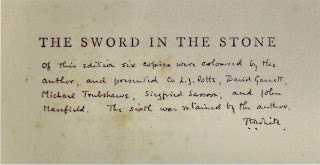 THE SWORD IN THE STONE
Of this edition six copies were coloured by the
author, and presented to L.J. Potts, David Garnett,
Michael Trubshawe, Siegfried Sassoon, and John
Masefield. The sixth was retained by the author.
T.H. White